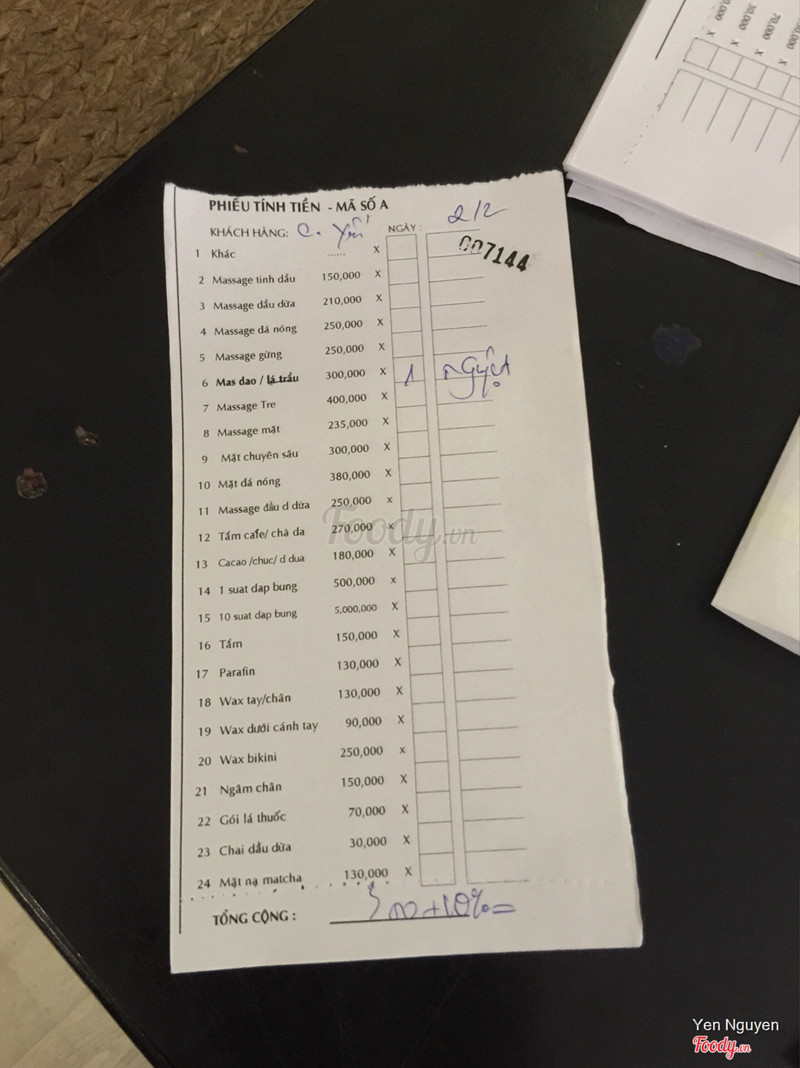 PHIẾU TÍNH TIỀN - MÃ SỐ A
KHÁCH HÀNG: C. Yến NGÀY: 2/2
007144
1 Khác ...... X
2 Massage tinh dầu 150,000 X
3 Massage dầu dừa 210,000 X
4 Massage đá nóng 250,000 X
5 Massage gừng 250,000 X
6 Mas dao / lá trầu 300,000 X 1 nguyệt
7 Massage Tre 400,000 X
8 Massage mặt 235,000 X
9 Mặt chuyên sâu 300,000 X
10 Mặt đá nóng 380,000 X
11 Massage đầu d dừa 250,000 x
12 Tắm cafe/ chà da 270,000 x
13 Cacao /chuc/ d dua 180,000 X
14 1 suat dap bung 500,000 x
15 10 suat dap bung 5,000,000 X
16 Tắm 150,000 X
17 Parafin 130,000 X
18 Wax tay/chân 130,000 X
19 Wax dưới cánh tay 90,000 X
20 Wax bikini 250,000 x
21 Ngâm chân 150,000 X
22 Gói lá thuốc 70,000 X
23 Chai dầu dừa 30,000 X
24 Mặt nạ matcha 130,000 X
TỔNG CỘNG : 300+10%=
Foody.vn
Yen Nguyen
Foody.vn